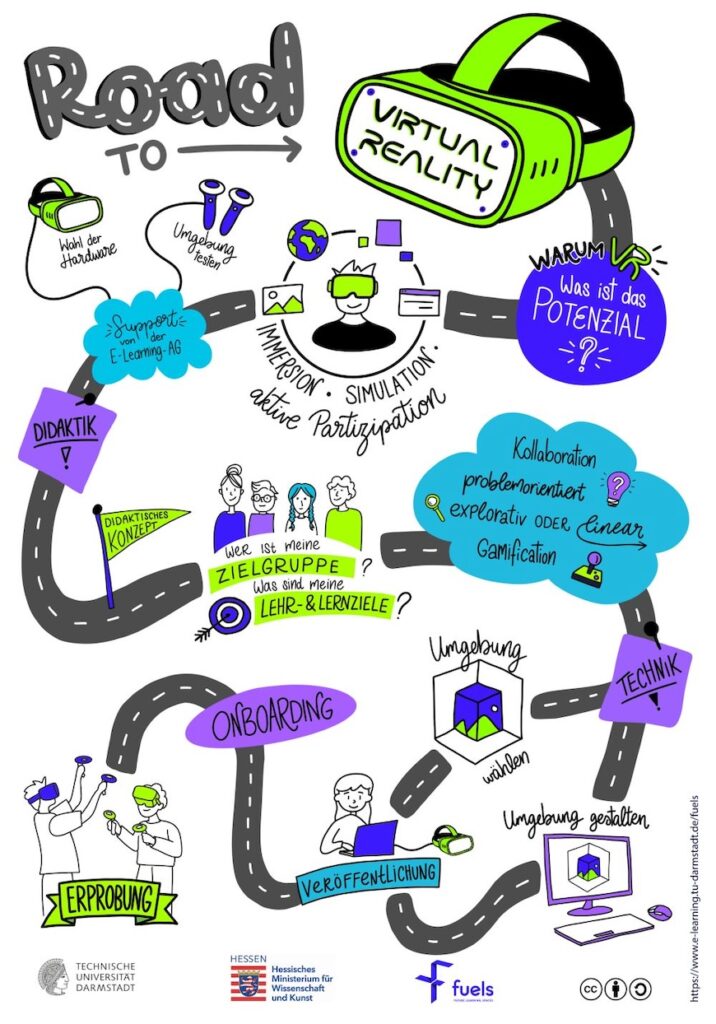 Road
TO
VIRTUAL
REALITY
WARUM VR
Was ist das
POTENZIAL
?
IMMERSION · SIMULATION ·
aktive Partizipation
Wahl der
Hardware
Umgebung
testen
Support
von der
E-Learning-AG
DIDAKTIK
!
DIDAKTISCHES
KONZEPT
WER IST MEINE
ZIELGRUPPE?
Was sind meine
LEHR- & LERNZIELE?
Kollaboration
problemorientiert
explorativ ODER linear
Gamification
TECHNIK
!
Umgebung
wählen
Umgebung gestalten
VERÖFFENTLICHUNG
ONBOARDING
ERPROBUNG
TECHNISCHE
UNIVERSITÄT
DARMSTADT
HESSEN
Hessisches
Ministerium für
Wissenschaft
und Kunst
fuels
FUTURE LEARNING SPACES
cc
https://www.e-learning.tu-darmstadt.de/fuels